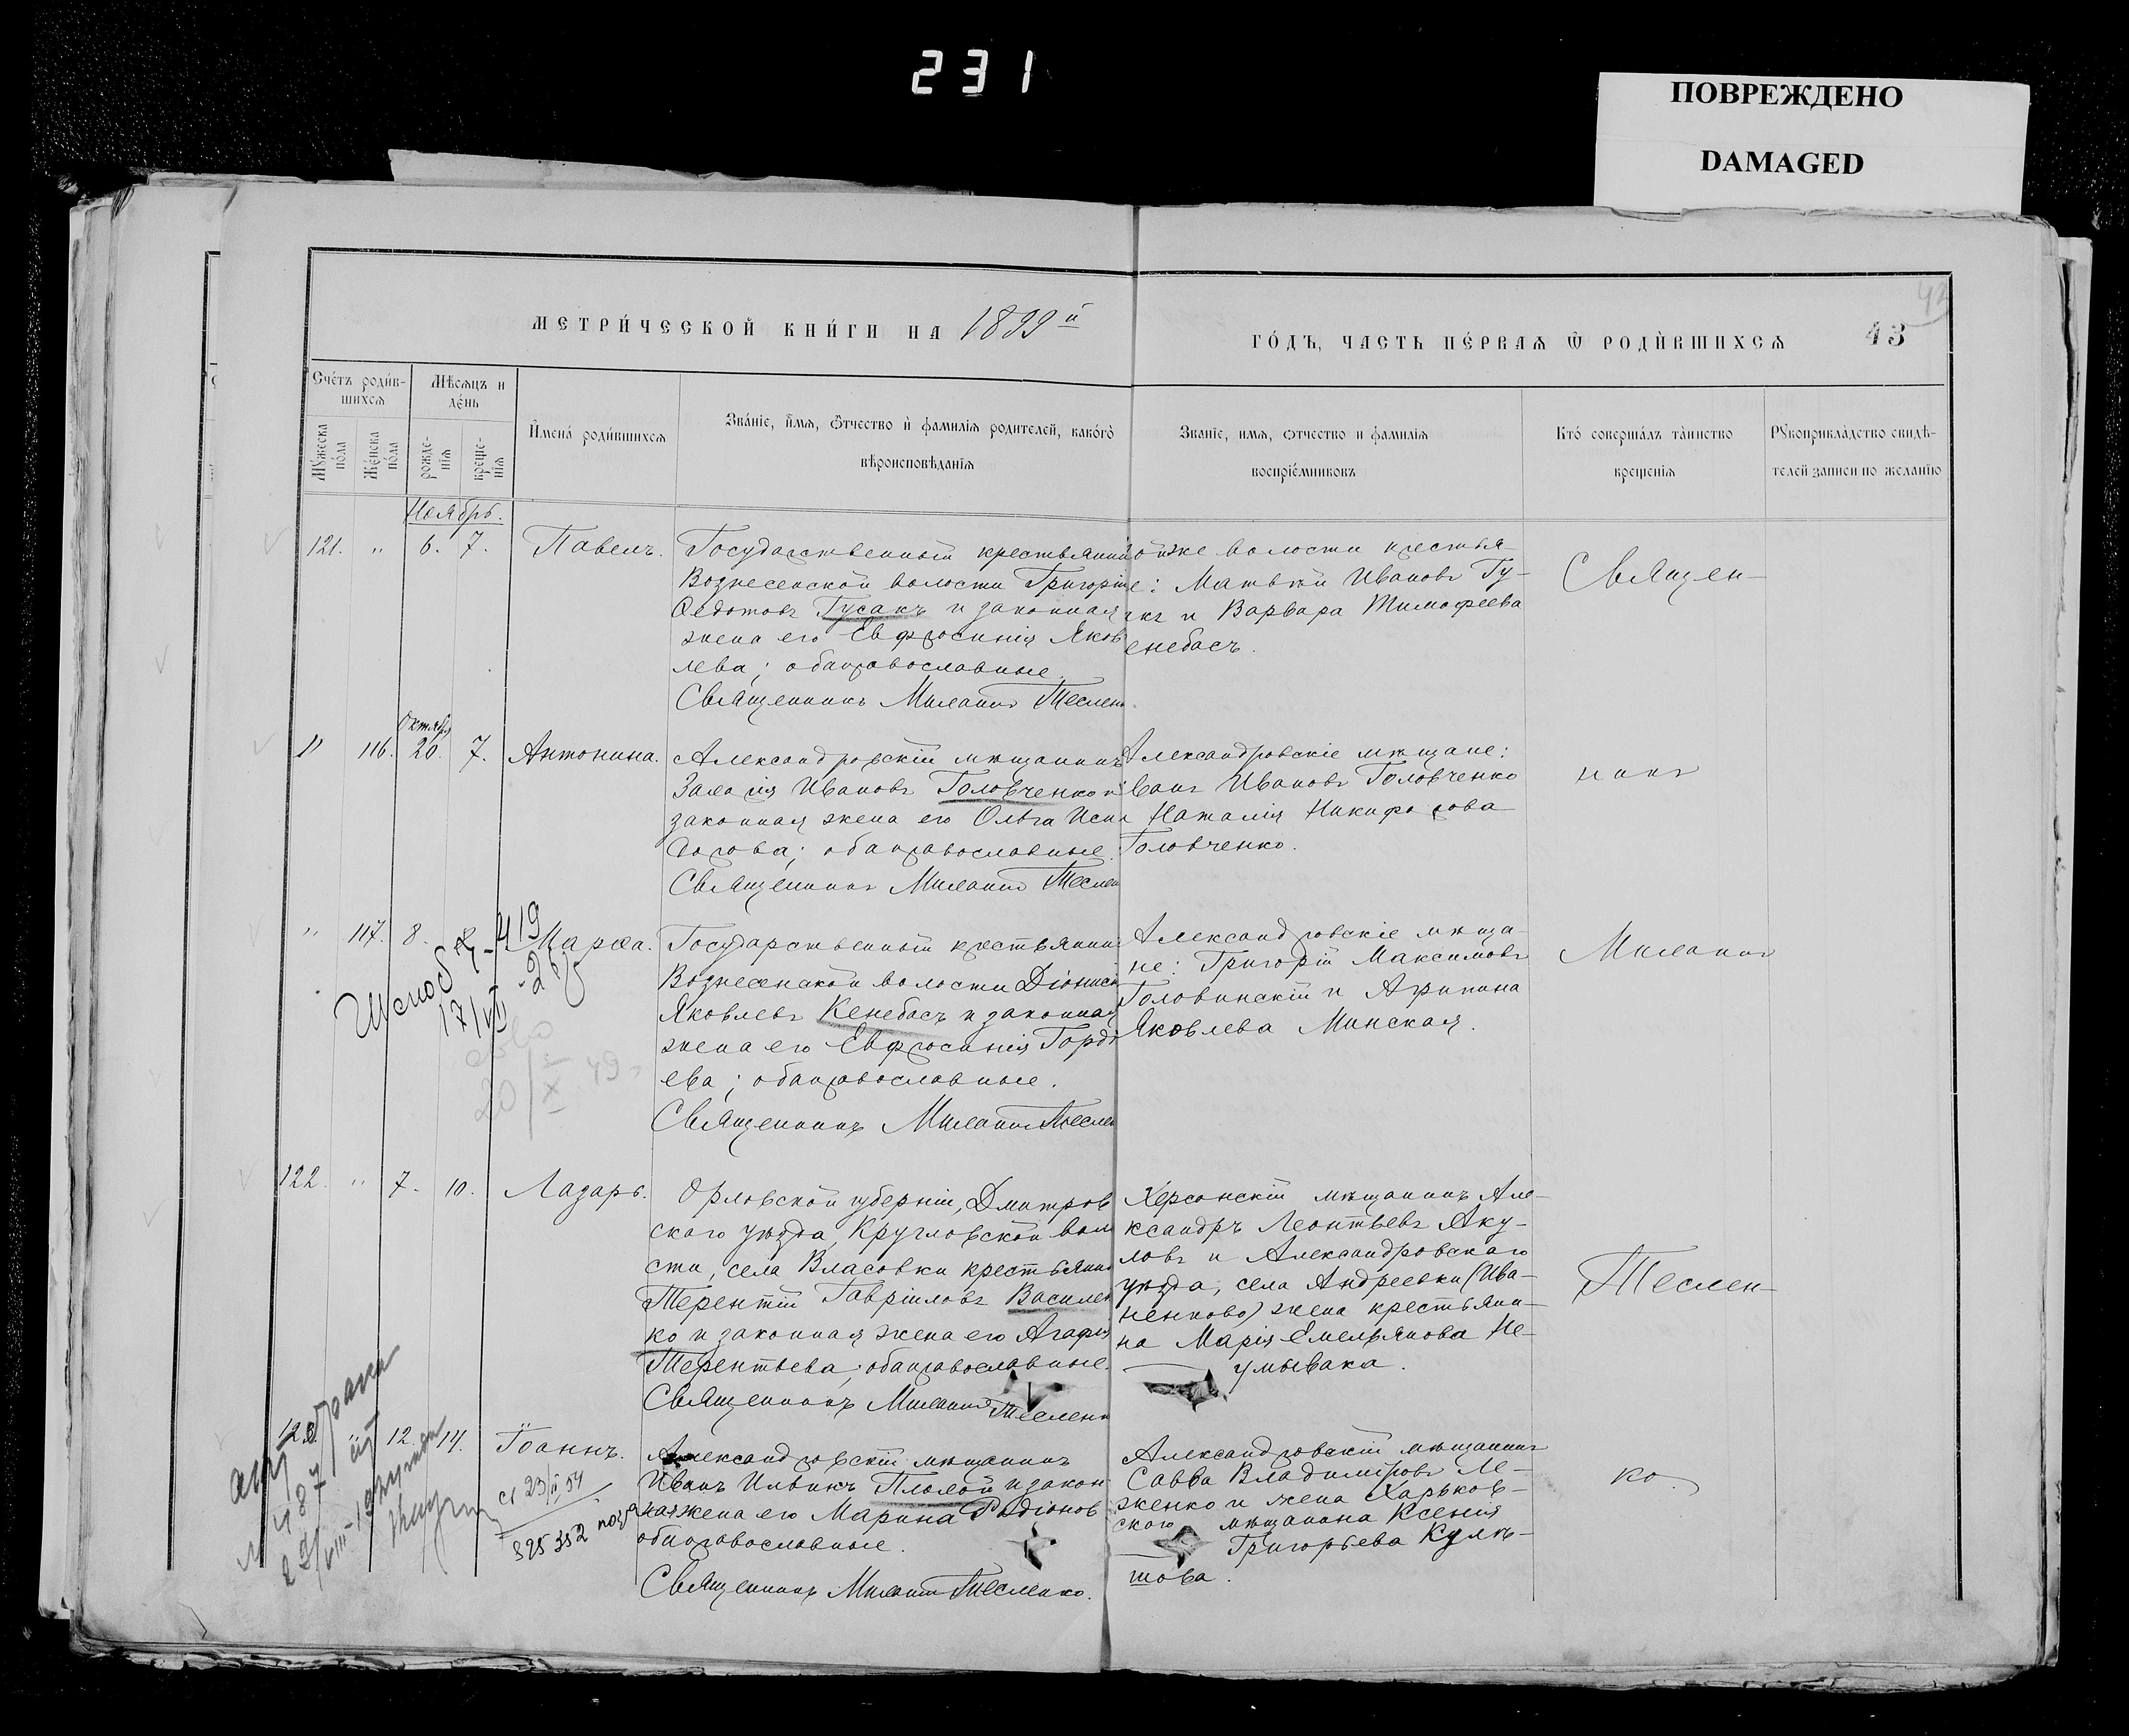 231
ПОВРЕЖДЕНО
DAMAGED
МЕТРИ́ЧЕСКОЙ КНИ́ГИ НА 1899й
ГО́ДЪ, ЧАСТЬ ПЕ́РВАѦ Ѿ РОДИ́ВШИХСѦ
43
Счéтъ роди́в-
шихсѧ
Мѣсѧцъ и
де́нь
Мꙋ́жеска
по́ла
Же́нска
по́ла
рожде-
нїѧ
креще-
нїѧ
И҆мена̀ роди́вшихсѧ
Зва́нїе, и҆́мѧ, ѻ҆́тчество и҆ фамилїѧ родителей, како́гѡ
вѣроисповѣданїѧ
Званїе, имѧ, ѻтчество и фамилїѧ
воспрїе́мниковъ
Кто́ соверша́лъ та́инство
крещенїѧ
Рꙋкоприкла́дство свидѣ-
телей записи по желанїю
Ноябрь.
121. " 6. 7. Павелъ.
Государственный крестьянинъ
Вознесенской волости Григорій
Ѳедотовъ Гусакъ и законная
жена его Евфросинія Яков
лева; оба православные.
Священникъ Милантій Теслен
ойже волости крестья
е: Матвѣй Ивановъ Гу-
акъ и Варвара Тимофеева
енебасъ.
Священ-
" 116. Октября 20. 7. Антонина.
Александровскій мѣщанинъ
Ивановъ Головченко и
законная жена его Ольга Иси
дорова; оба православные.
Священникъ Теслен
Александровскіе мѣщане:
ванъ Ивановъ Головченко
Наталія Никифорова
Головченко.
никъ
" 117. 8. Марѳа.
419
Государственный крестьянинъ
Вознесенской волости Діонисій
Яковлевъ Кенебасъ и законная
жена его Евфросинія Горде
ева; оба православные.
Священникъ Теслен
Александровскіе мѣща-
не: Григорій Максимовъ
Головинскій и Агрипина
Яковлева Минская.
17/VII
20/X 49
122. " 7. 10. Лазарь.
Орловской губерніи, Дмитров
скаго уѣзда, Кругловской воло
сти, села Власовки крестьянинъ
Терентій Гавріиловъ Василен
ко и законная жена его Агафія
Терентьева; оба православные.
Священникъ Тесленк
Херсонскій мѣщанинъ Але-
ксандръ Леонтьевъ Аку-
ловъ и Александровскаго
уѣзда, села Андреевки (Ива-
ненково) жена крестьяни-
на Марія Емельянова Не-
умывака.
Теслен-
12. 14. Іоаннъ.
Александровскій мѣщанинъ
Иванъ Плохой и закон
ная жена его Марина Родіонов
оба православные.
Священникъ Тесленко.
Александровскій мѣщанинъ
Савва Владиміровъ Ле-
женко и жена Харьков-
скаго мѣщанина Ксенія
Григорьева Кулѣ-
шова.
ко.
487
325 352